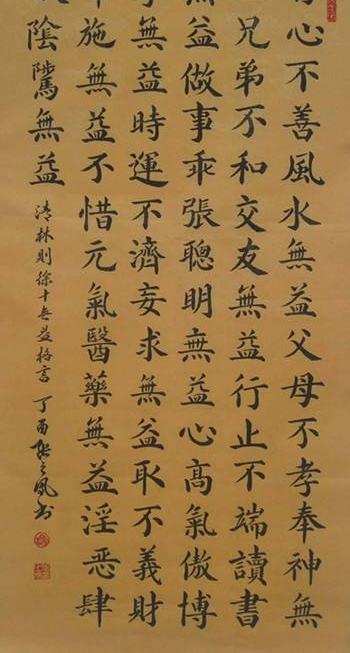 心不善風水無益父母不孝奉神無
兄弟不和交友無益行止不端讀書
無益做事乖張聰明無益心高氣傲博
無益時運不濟妄求無益取不義財
施無益不惜元氣醫藥無益淫恶肆
陰騭無益
清林則徐十无益格言丁酉